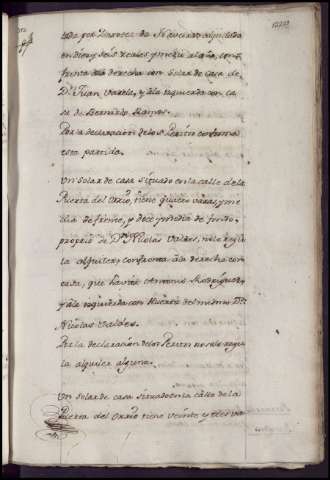 en diez y seis reales y medio al año, con
fronta derecha con Solar de Casa de
Dn Juan Varela, y ala izquierda con ca
sa de Bernardo Ramos.
Por la declaracion delos Peritos conforma
esta partida.
Un Solar de casa situado en la calle dela
Puerta del tiene quince varas, y me
dia de frente, y doce y media de fondo,
proprio de Dn Nicolas Valdes, nole regu
la alquiler; confronta ála derecha con
casa, que havita Antonio Rodriguez,
y ála izquierda con Huerta del mismo Dn
Nicolas Valdes.
Por la declaracion delos Peritos no sele regu
la alquiler alguno.
Un Solar de casa situado en la calle de la
Puerta del tiene veinte y tres va